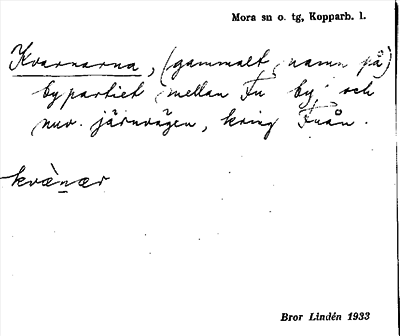 Mora sn o. tg, Kopparb. l.
Kvarnarna, (gammalt namn på)
bypartiet mellan Fu by och
nuv. järnvägen, kring Fuån.
kvæ̀nær
Bror Lindén 1933